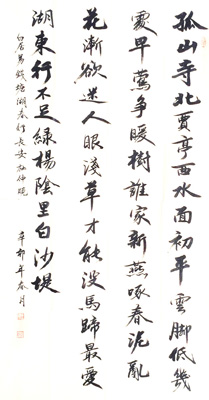 孤山寺北賈亭西水面初平雲脚低幾
處早鶯爭暖樹誰家新燕啄春泥亂
花漸欲迷人眼淺草才能没馬蹄最愛
湖東行不足綠楊陰里白沙堤
白居易錢塘湖春行長安
辛卯年春月